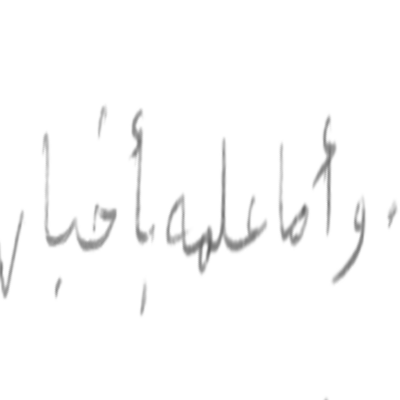 . وأما علمه بأخبار